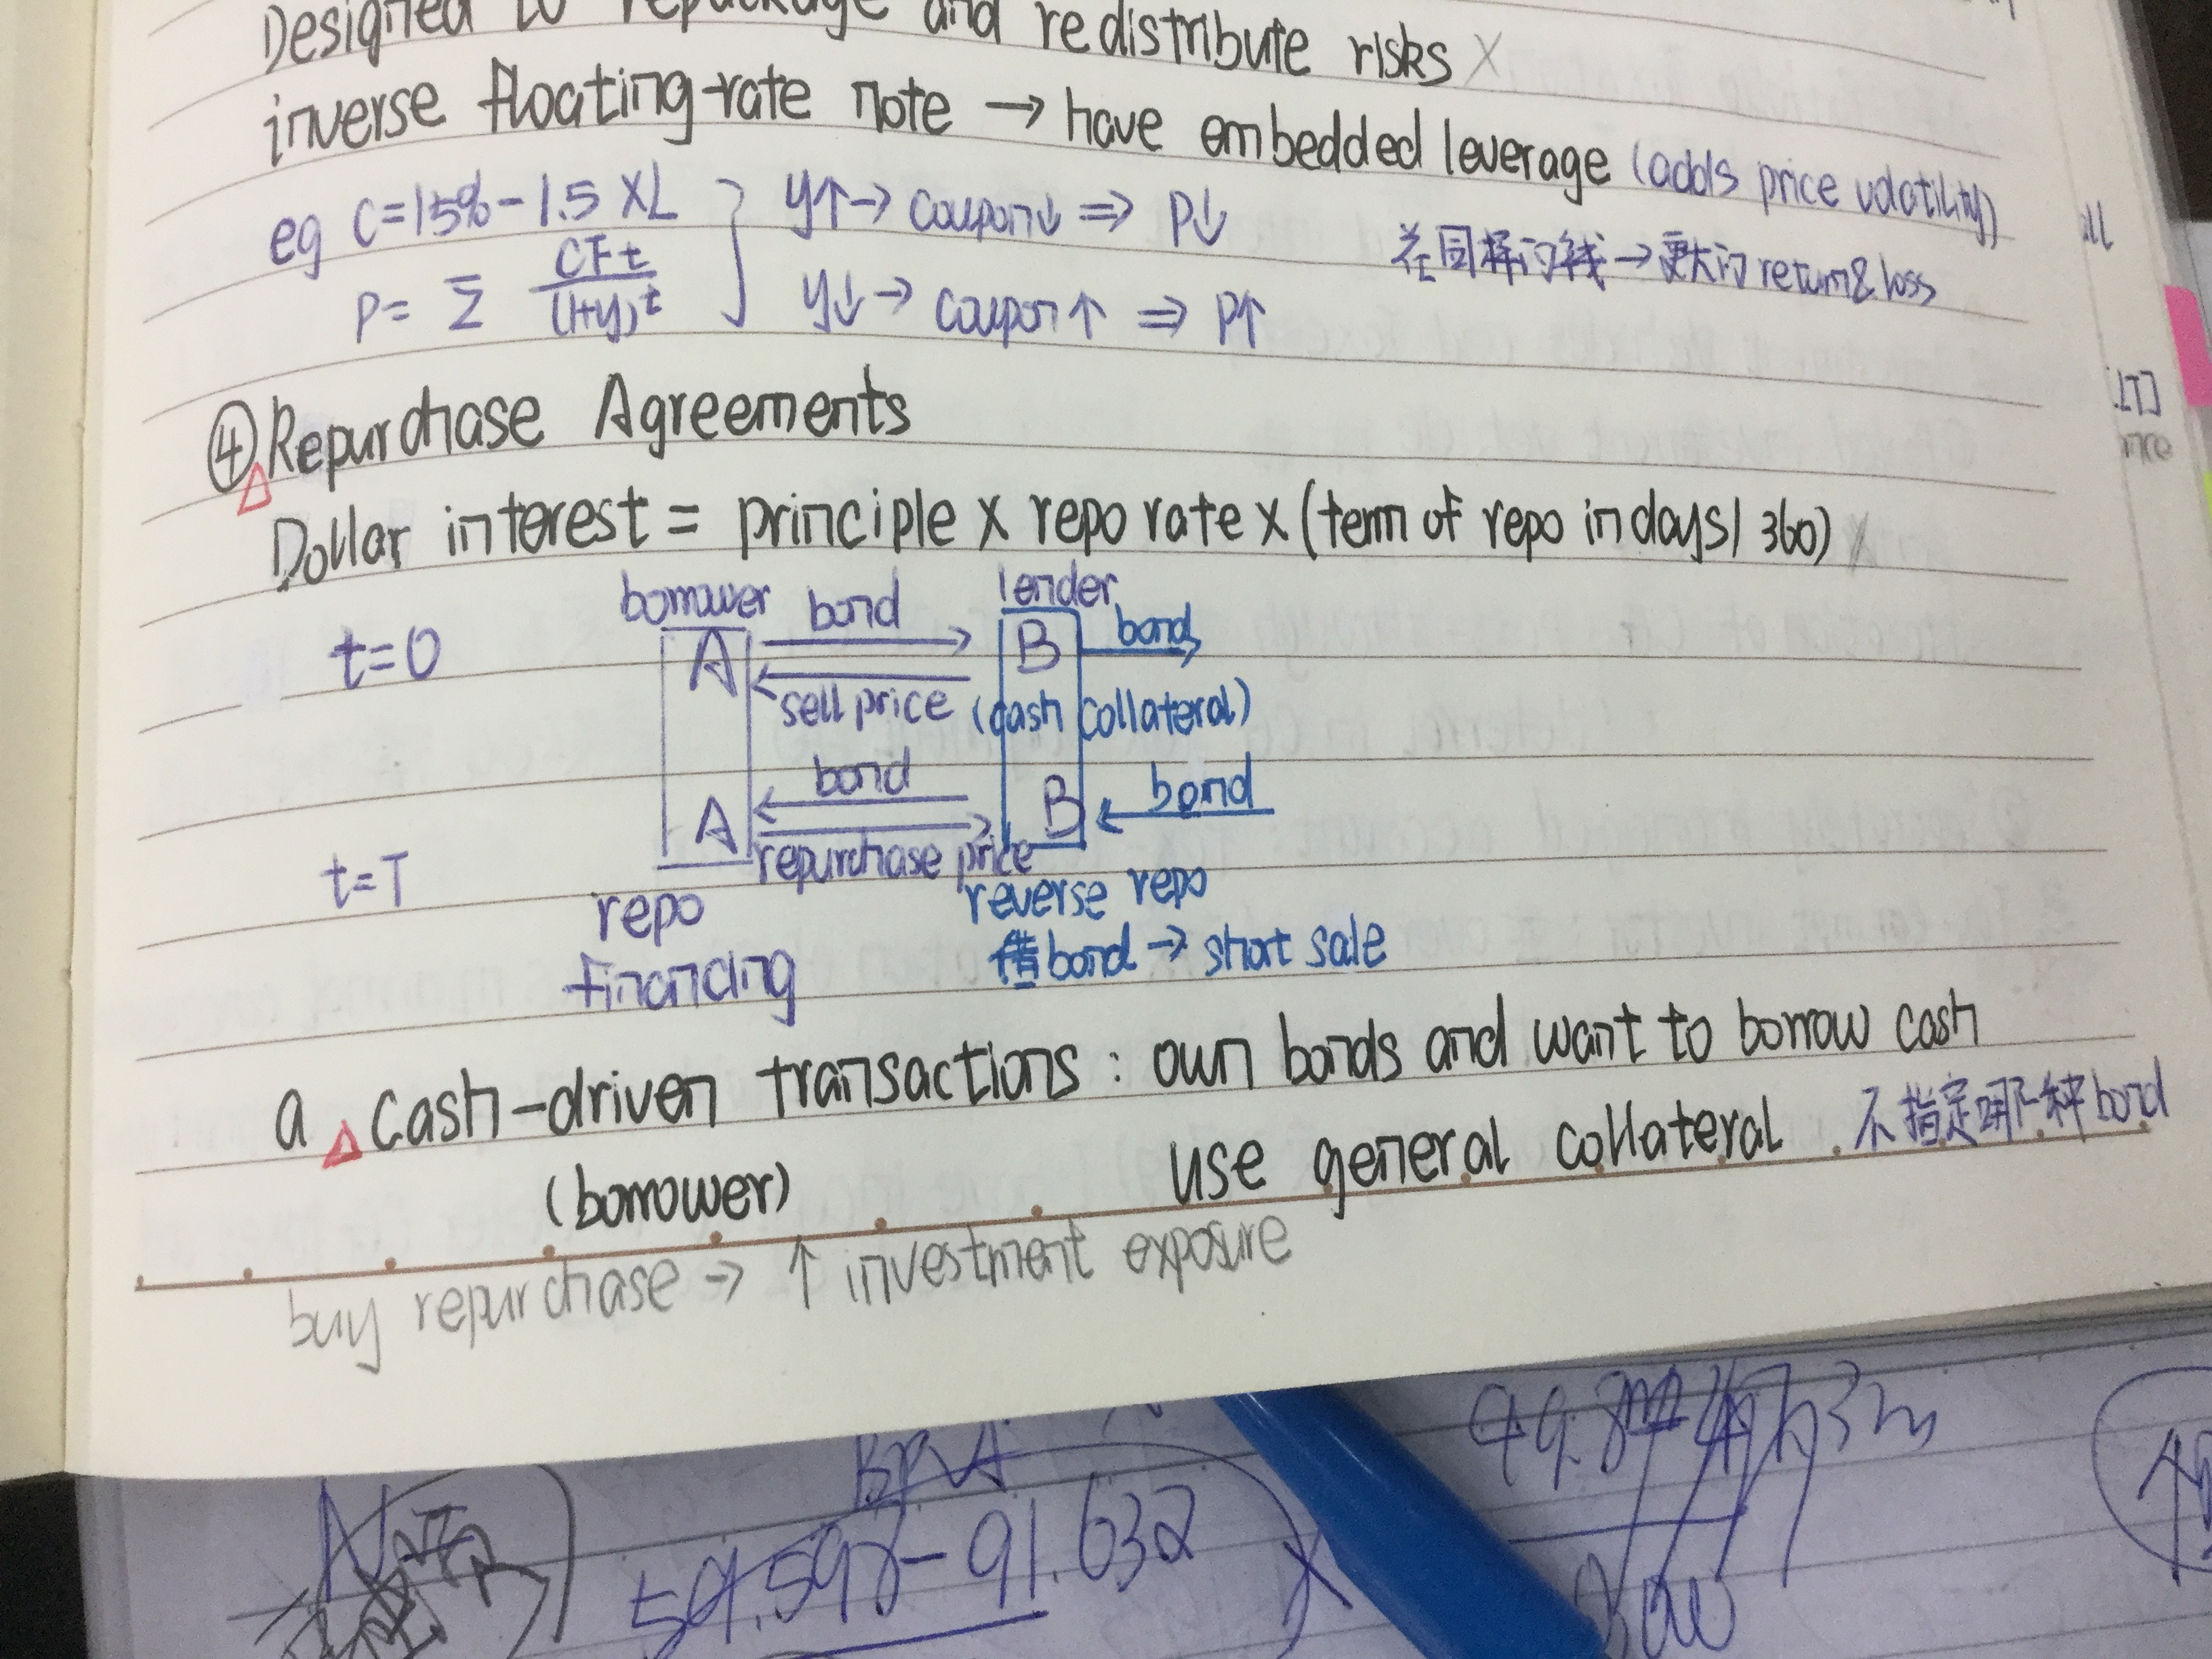 Designed to repackage and redistribute risks X
inverse floating-rate note → have embedded leverage (adds price volatility)
eg C=15%-1.5×L } y↑→ coupon↓ ⇒ P↓
P= Σ CFt/(1+y)^t y↓→ coupon↑ ⇒ P↑
在同样的钱→更大的return&loss
④ Repurchase Agreements
Dollar interest = principle × repo rate × (term of repo in days/360)
borrower bond lender
t=0 A B bond
sell price (cash collateral)
bond
A B bond
t=T repurchase price
repo reverse repo
financing 借bond → short sale
a △ cash-driven transactions : own bonds and want to borrow cash
(borrower) use general collateral 不指定哪一种bond
buy repurchase → ↑ investment exposure
59.598-91.632